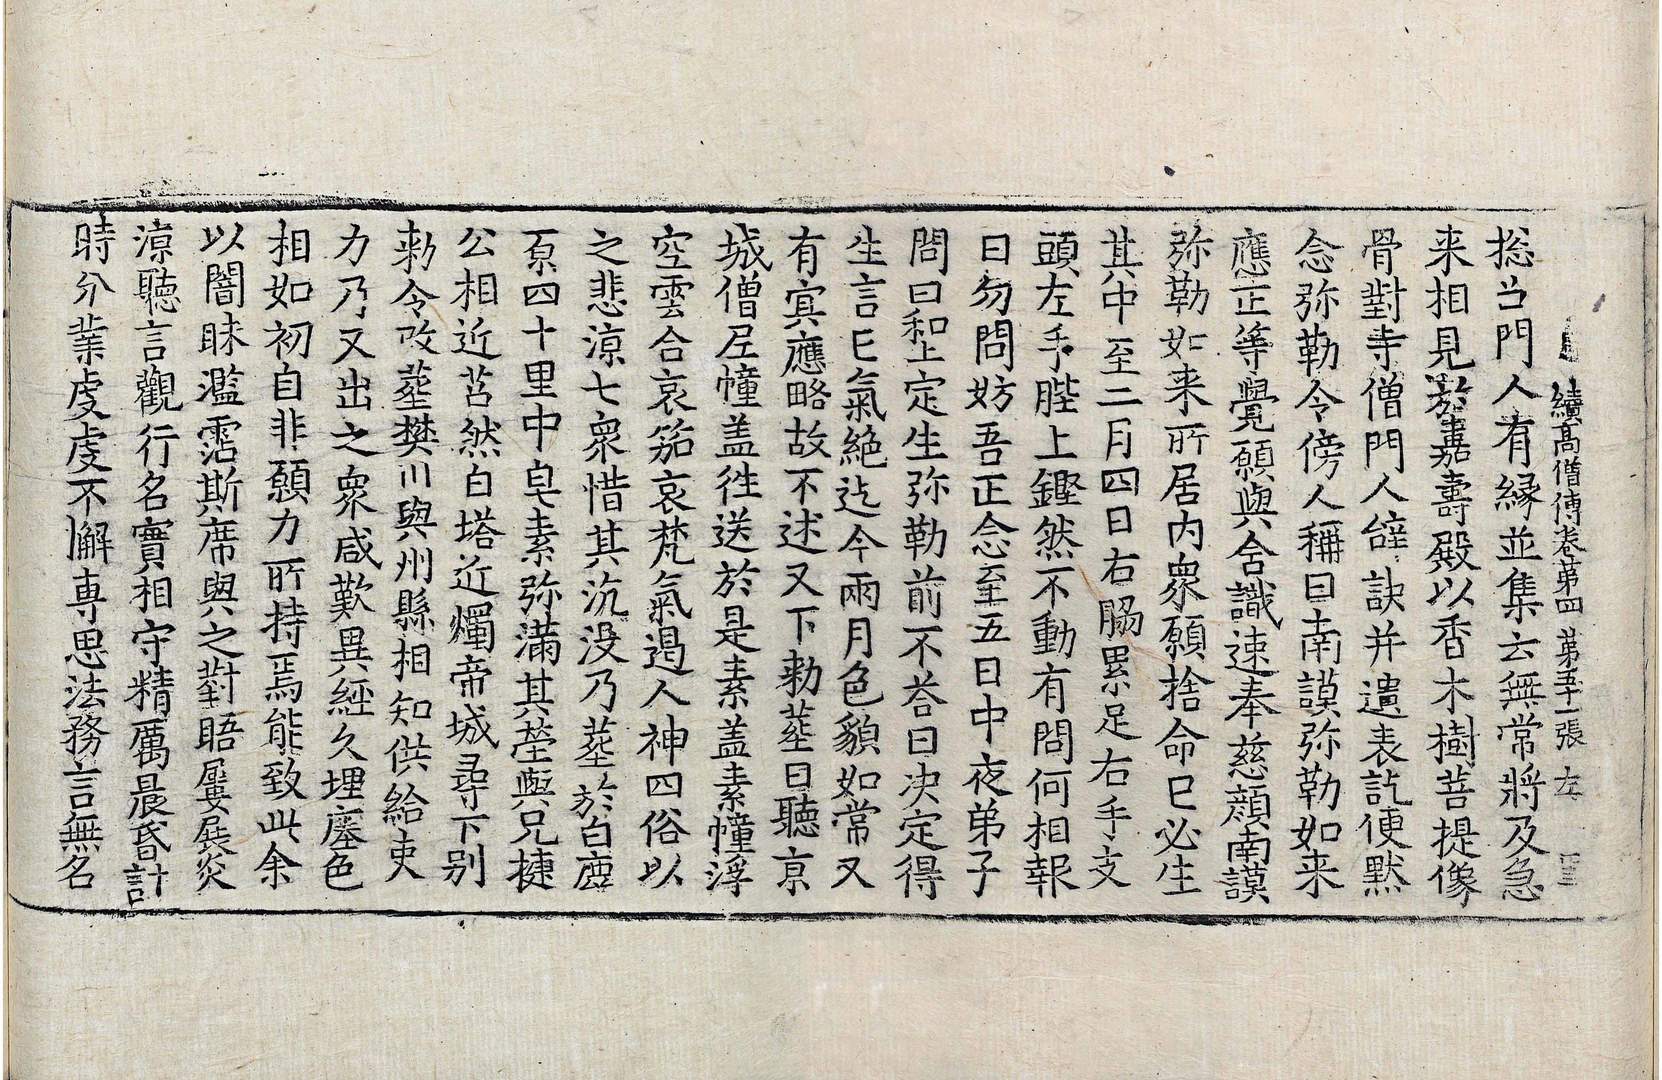 續高僧傳卷第四 第五十一張 左
捴召門人有緣並集云無常將及急
来相見於嘉壽殿以香木樹菩提像
骨對寺僧門人辭訣并遺表訖便黙
念弥勒令傍人稱曰南謨弥勒如来
應正等覺願與含識速奉慈顔南謨
弥勒如来所居内衆願捨命已必生
其中至二月四日右脇累足右手支
頭左手䏶上鏗然不動有問何相報
曰勿問妨吾正念至五日中夜弟子
問曰和上定生弥勒前不荅曰决定得
生言已氣絶迄今兩月色貌如常又
有冥應略故不述又下勑葬日聽京
城僧尼幢盖徃送於是素盖素幢浮
空雲合哀笳哀梵氣遏人神四俗以
之悲涼七衆惜其沉没乃葬於白鹿
原四十里中皂素弥滿其塋與兄捷
公相近苕然白塔近燭帝城尋下别
勑令改葬樊川與州縣相知供給吏
力乃又出之衆咸歎異經久埋塵色
相如初自非願力所持焉能致此余
以闇昧濫霑斯席與之對晤屢展炎
涼聽言觀行名實相守精厲晨昏計
時分業虔虔不懈専思法務言無名